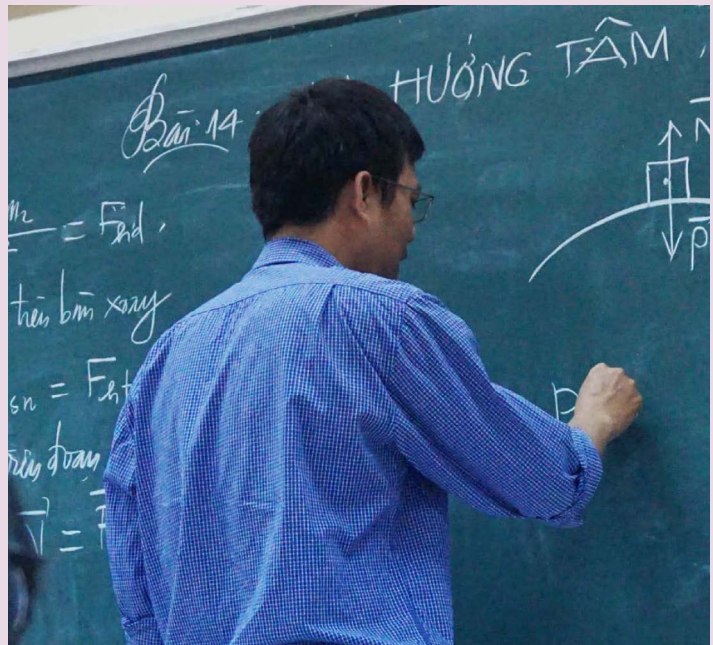 Bài 14: HƯỚNG TÂM
N
P
m₂ = Fhd.
trên bàn xoay
sn = Fht
P
trên đoạn
N =